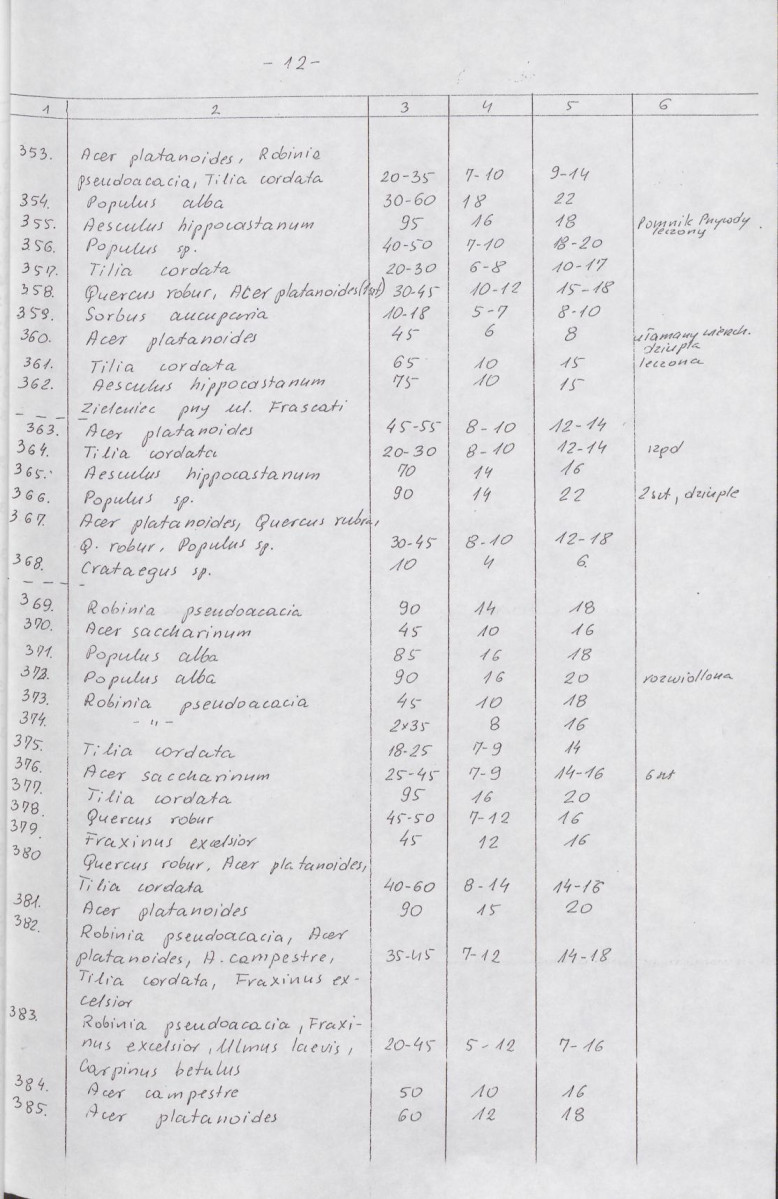 - 12 -
1 2 3 4 5 6
353. Acer platanoides, Robinia
pseudoacacia, Tilia cordata 20-35 7-10 9-14
354. Populus alba 30-60 18 22
355. Aesculus hippocastanum 95 16 18 Pomnik Przyrody
leczony
356. Populus sp. 40-50 7-10 18-20
357. Tilia cordata 20-30 6-8 10-17
358. Quercus robur, Acer platanoides (1szt) 30-45 10-12 15-18
359. Sorbus aucuparia 10-18 5-7 8-10
360. Acer platanoides 45 6 8 ułamany wierzch.
dziupla
361. Tilia cordata 65 10 15 leczona
362. Aesculus hippocastanum 75 10 15
Zieleniec pny ul. Frascati
363. Acer platanoides 45-55 8-10 12-14
364. Tilia cordata 20-30 8-10 12-14 rzpd
365. Aesculus hippocastanum 70 14 16
366. Populus sp. 90 14 22 2szt, dziuple
367. Acer platanoides, Quercus rubra,
Q. robur, Populus sp. 30-45 8-10 12-18
368. Crataegus sp. 10 4 6
369. Robinia pseudoacacia 90 14 18
370. Acer saccharinum 45 10 16
371. Populus alba 85 16 18
372. Populus alba 90 16 20 rozwidlona
373. Robinia pseudoacacia 45 10 18
374. - " - 2x35 8 16
375. Tilia cordata 18-25 7-9 14
376. Acer saccharinum 25-45 7-9 14-16 6 szt
377. Tilia cordata 95 16 20
378. Quercus robur 45-50 7-12 16
379. Fraxinus excelsior 45 12 16
380 Quercus robur, Acer platanoides,
Tilia cordata 40-60 8-14 14-16
381. Acer platanoides 90 15 20
382. Robinia pseudoacacia, Acer
platanoides, A. campestre, 35-45 7-12 14-18
Tilia cordata, Fraxinus ex-
celsior
383. Robinia pseudoacacia, Fraxi-
nus excelsior, Ulmus laevis, 20-45 5-12 7-16
Carpinus betulus
384. Acer campestre 50 10 16
385. Acer platanoides 60 12 18